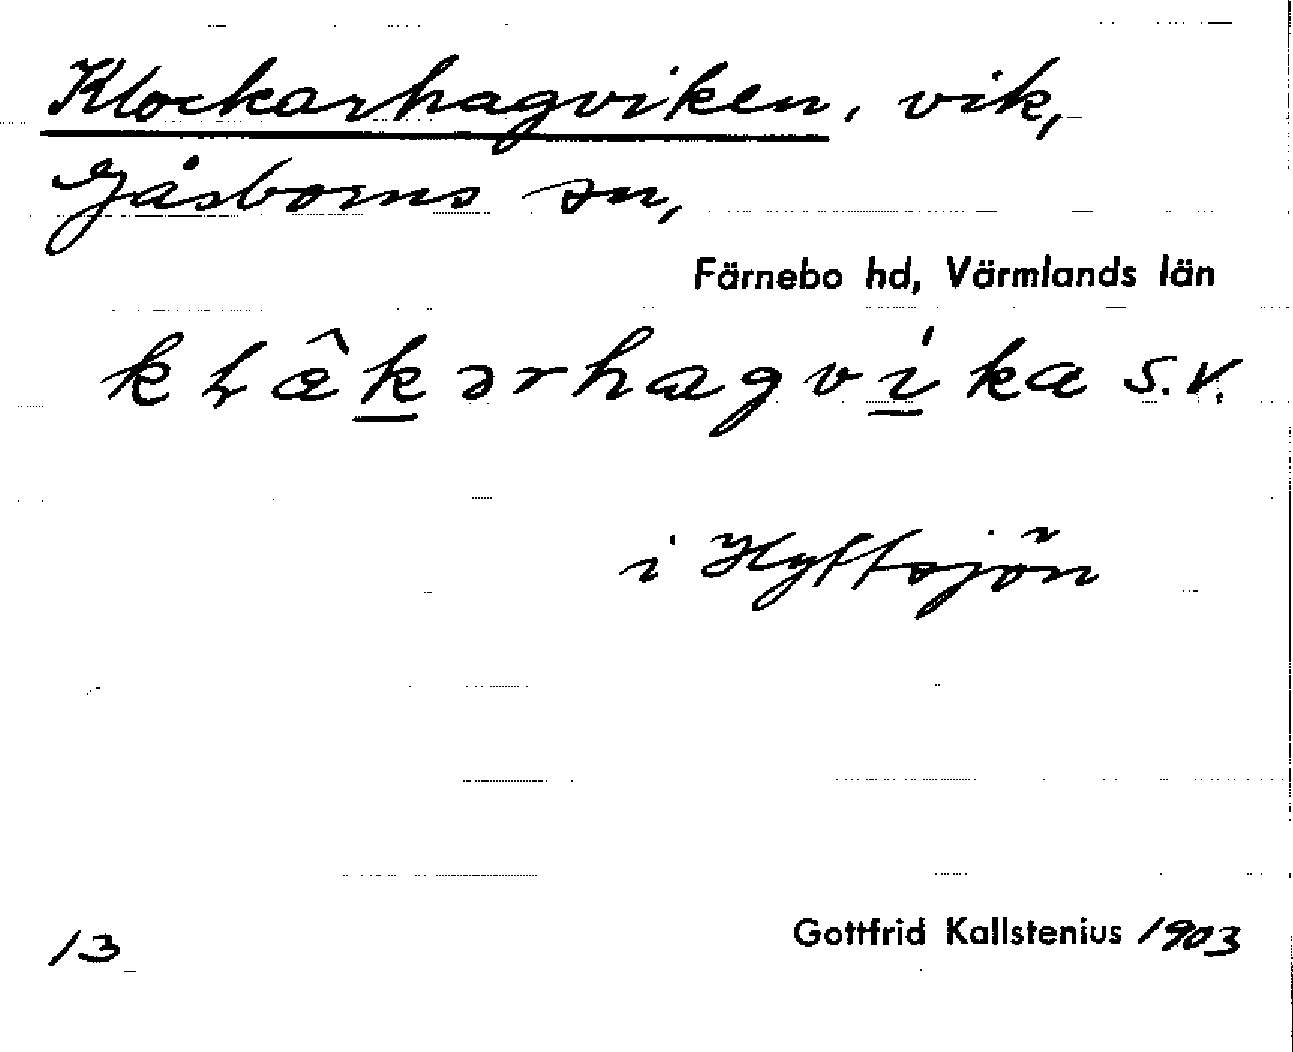 Klockarhagviken, vik,
Gåsborns sn,
Färnebo hd, Värmlands län
kɫâkərhagvika s.v.
i Hyttsjön
13
Gottfrid Kallstenius 1903